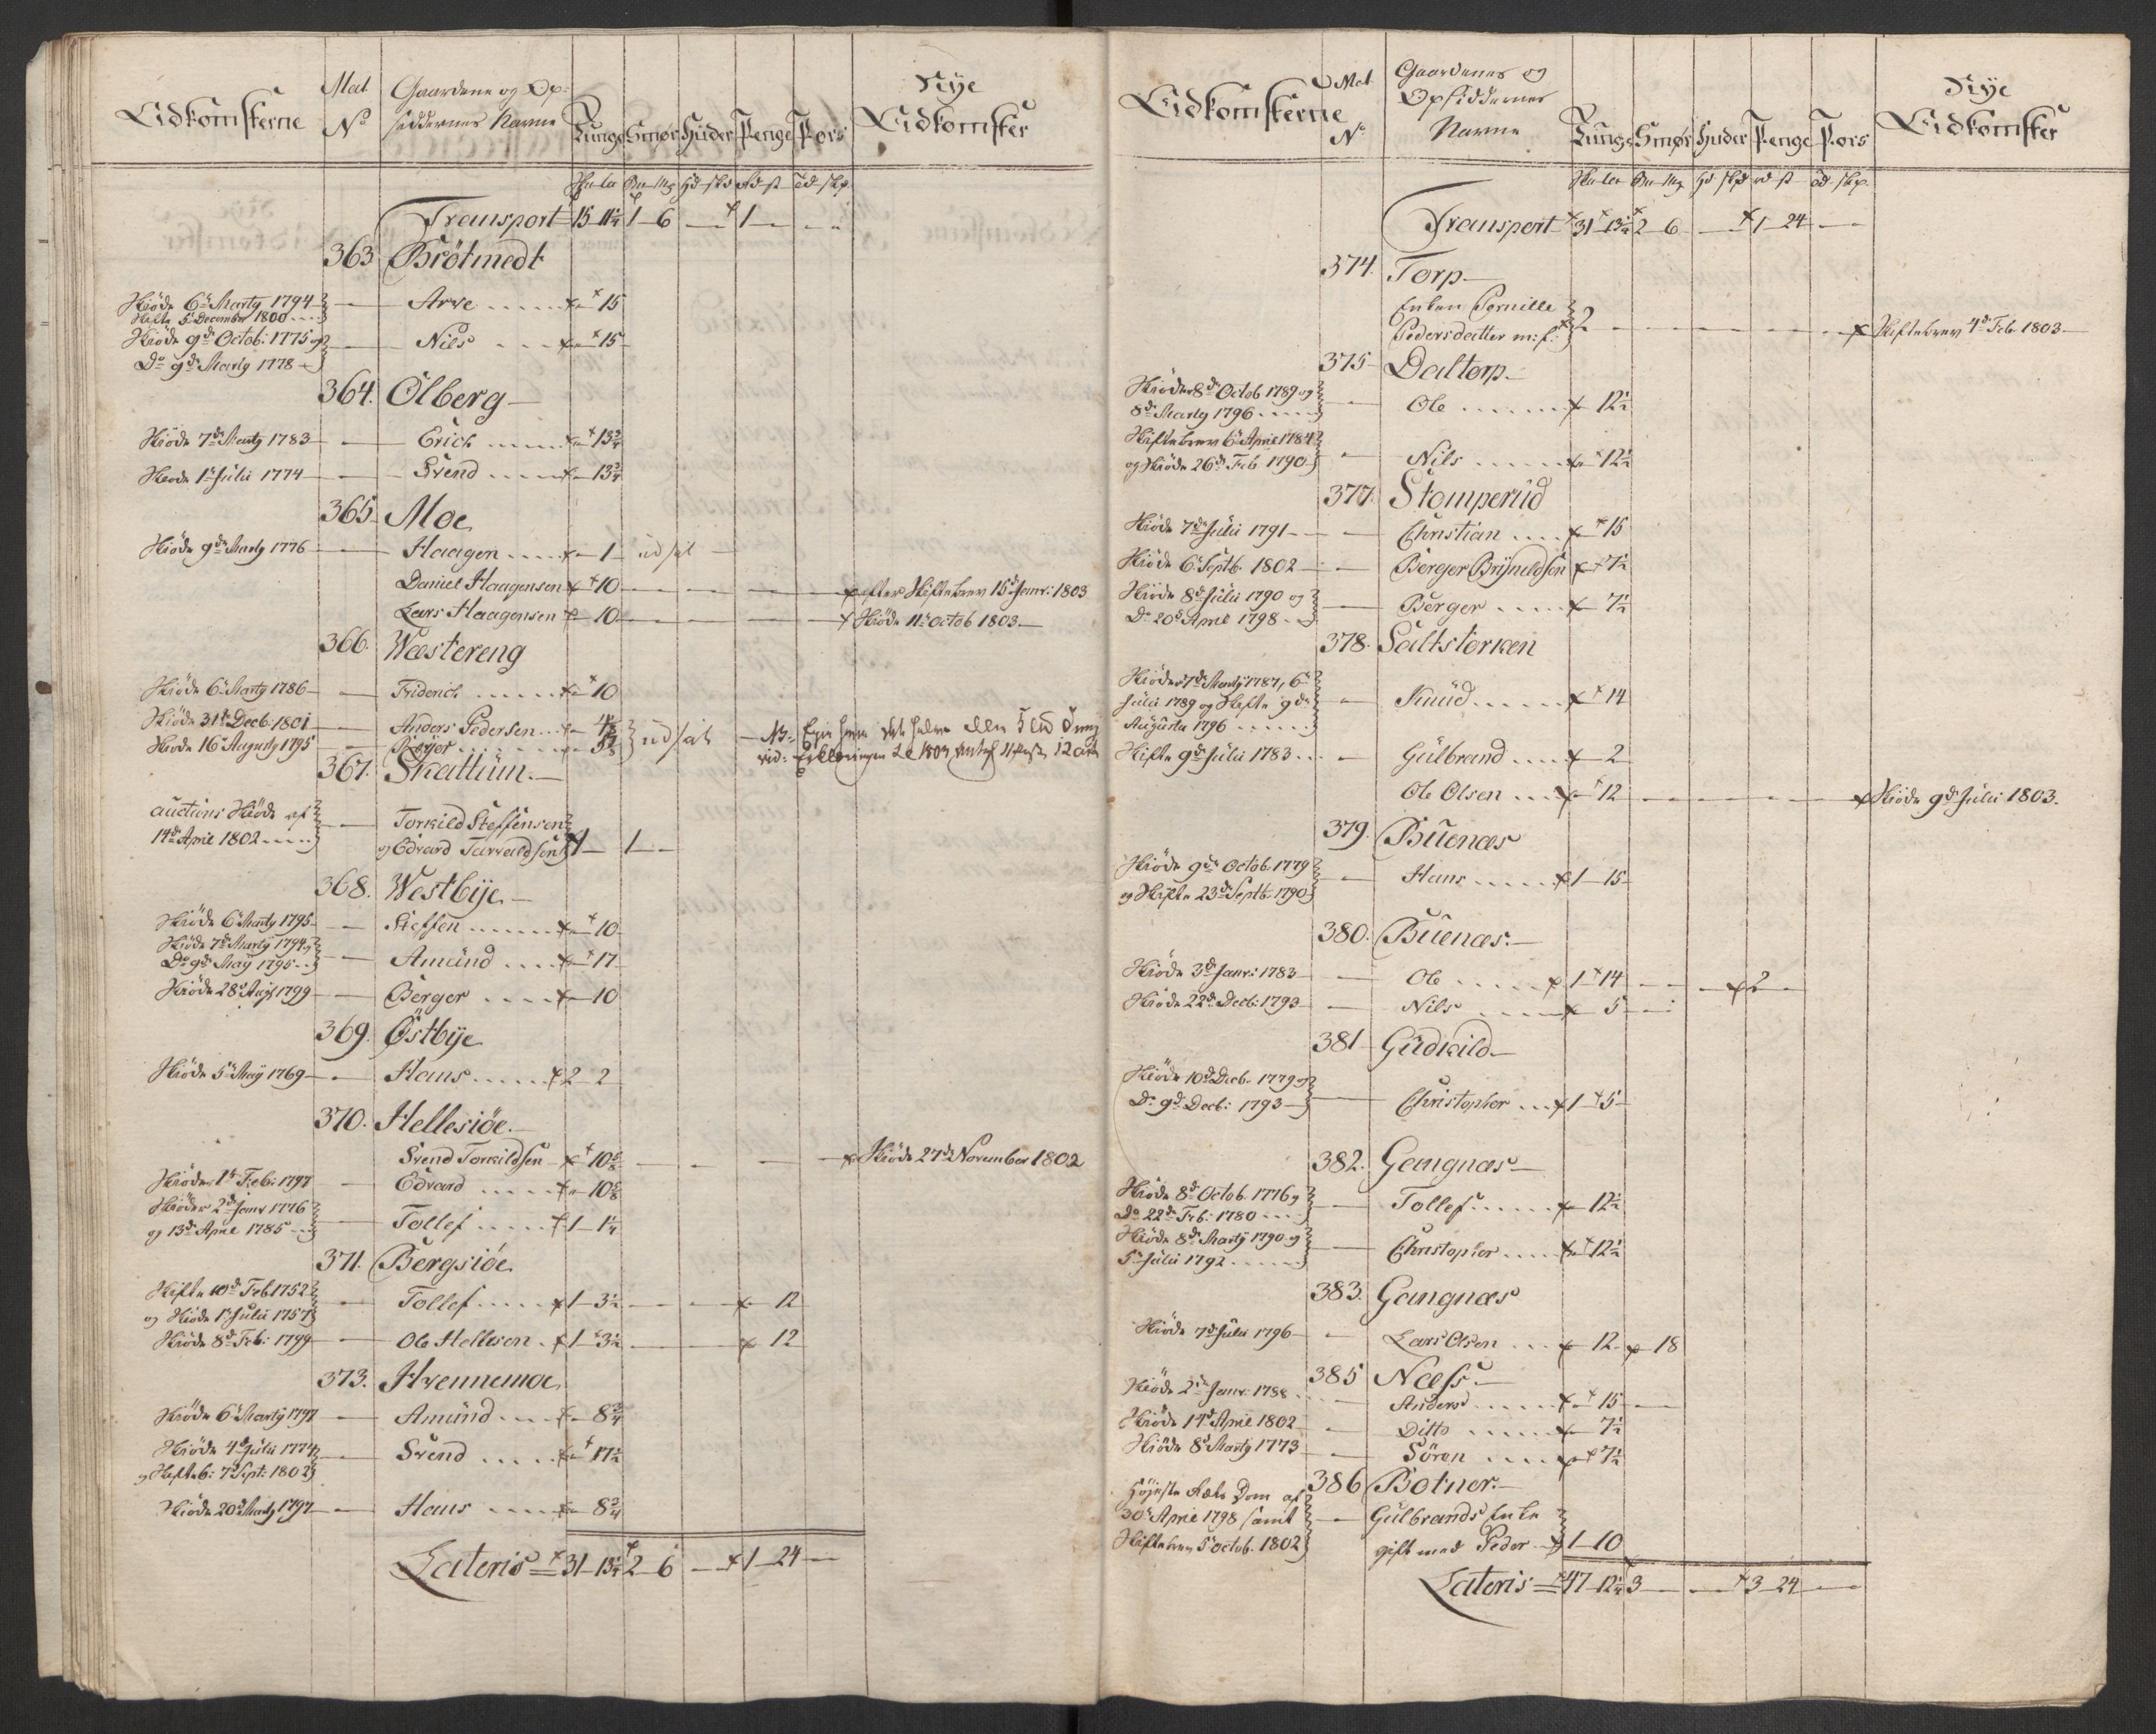 Adkomsterne
Mat No
Gaardene og Op-
siddernes Navne
Tunge Smør Huder Penge Kors
Nye Adkomster
Transport 15-11¼ 1-6 — 1 —
363. Brötmedt
Skiöde 6te Marty 1794
Skifte 5te December 1800 — Arve — 15
Skiöde 9de Octob: 1775 og
Do 9de Marty 1778 — Nils — 15
364. Olberg
Skiöde 7de Marty 1783 — Erich — 13¾
Skiode 1te Julii 1774 — Svend — 13¾
365. Moe
Skiöde 9de Marty 1776 — Haagen — 1 — udsat
Daniel Haagensen 10 — efter Skiftebrev 15de Janv: 1803
Lars Haagensen 10 — Skiöde 11te Octob 1803
366. Wæstereng
Skiöde 6te Marty 1786 — Friderich — 10
Skiöde 31te Decb: 1801 — Anders Pedersen
Skiöde 16de Augusty 1795 — udsat
367. Skattum
auctions Skiöde af
14de April 1802
Torkild Steffensen
og Edvard Tarraldsen 1 — 1 —
368. Westbye
Skiöde 6te Marty 1795 — Steffen — 10
Skiöde 7de Marty 1794 og
Do 9de May 1795 — Amund — 17
Skiöde 28de Aug 1799 — Berger — 10
369. Østbye
Skiöde 5te May 1769 — Hans 2-2
370. Hellesiöe
Svend Torkildsen — 10⅝ — Skiöde 27de November 1802
Skiöde 1te Feb: 1797 — Edvard — 10⅝
Skiöder 2de Janv 1776
og 13de April 1785 — Tollef 1-1¼
371. Bergsiöe
Skifte 10de Feb 1752
og Skiöde 1te Julii 1757 — Tollef 1-3½ — 12
Skiöde 8de Feb: 1799 — Ole Hellesen 1-3½ — 12
373. Hvennemoe
Skiöde 6te Marty 1797 — Amund — 8¾
Skiöde 4de Julii 1774
og Skifteb: 7de Sept: 1802 — Svend — 17½
Skiöde 20de Marty 1797 — Hans — 8¾
Lateris 31-13¼ 2-6 — 1-24 —
Adkomsterne
Mat No
Gaardenes og
Opsiddernes
Navne
Tunge Smør Huder Penge Kors
Nye Adkomster
Transport 31-13¼ 2-6 — 1-24 —
374. Torp
Enken Pernille
Pedersdatter m: f: 2 — Skiftebrev 4de Feb 1803
375. Daltorp
Skiöder 8de Octob 1789 og
8de Marty 1796 — Ole — 12½
Skiftebrev 6te April 1784
og Skiöde 26de Feb 1790 — Nils — 12½
377. Stomperud
Skiöde 7de Julii 1791 — Christian — 15
Skiöde 6te Septb. 1802 — Berger Brynildsen — 7½
Skiöde 8de Julii 1790 og
Do 20de April 1798 — Berger — 7½
378. Saltstorken
Skiöder 7de Marty 1787, 6te
Julii 1789 og Skifte 9de
Augusti 1796 — Knud — 14
Skifte 9de Julii 1783 — Gulbrand — 2
Ole Olsen — 12 — Skiöde 9de Julii 1803.
379. Buenæs
Skiöde 9de Octob. 1779
og Skifte 23de Septb. 1790 — Hans 1-15
380. Buenæs
Skiöde 3de Janv: 1783 — Ole 1-14 — 2 —
Skiöde 22de Decb: 1793 — Nils — 5
381 Gudkild
Skiöde 10de Decb. 1779 og
Do 9de Decb: 1793 — Christopher 1-5
382. Gangnæs
Skiöde 8de Octob. 1776 og
Do 22de Feb: 1780 — Tollef — 12½
Skiöde 8de Marty 1790 og
5te Julii 1792 — Christopher — 12½
383. Gangnæs
Skiöde 7de Julii 1796 — Lars Olsen — 12 — 18
385 Næss
Skiöde 2de Janv: 1788 — Anders — 15
Skiöde 14de April 1802 — Ditto — 7½
Skiöde 8de Marty 1773 — Sören — 7½
386 Botner
Höjeste Rets Dom af
30te April 1798 samt
Skiftebrev 5te Octob. 1802
Gulbrands Enke
gift med Peder 1-10
Lateris 47-12¼ 3 — 3-24 —